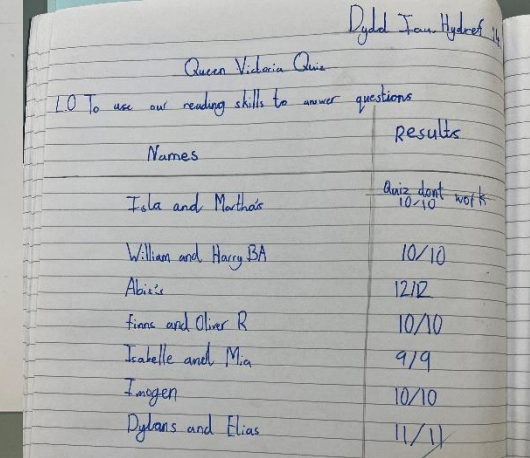 Dydd Iau Hydref 14
Queen Victoria Quiz
L.O To use our reading skills to answer questions
Names Results
Isla and Martha's Quiz dont work 10/10
William and Harry BA 10/10
Abis's 12/12
finns and Oliver R 10/10
Isabelle and Mia 9/9
Imogen 10/10
Dylans and Elias 11/11